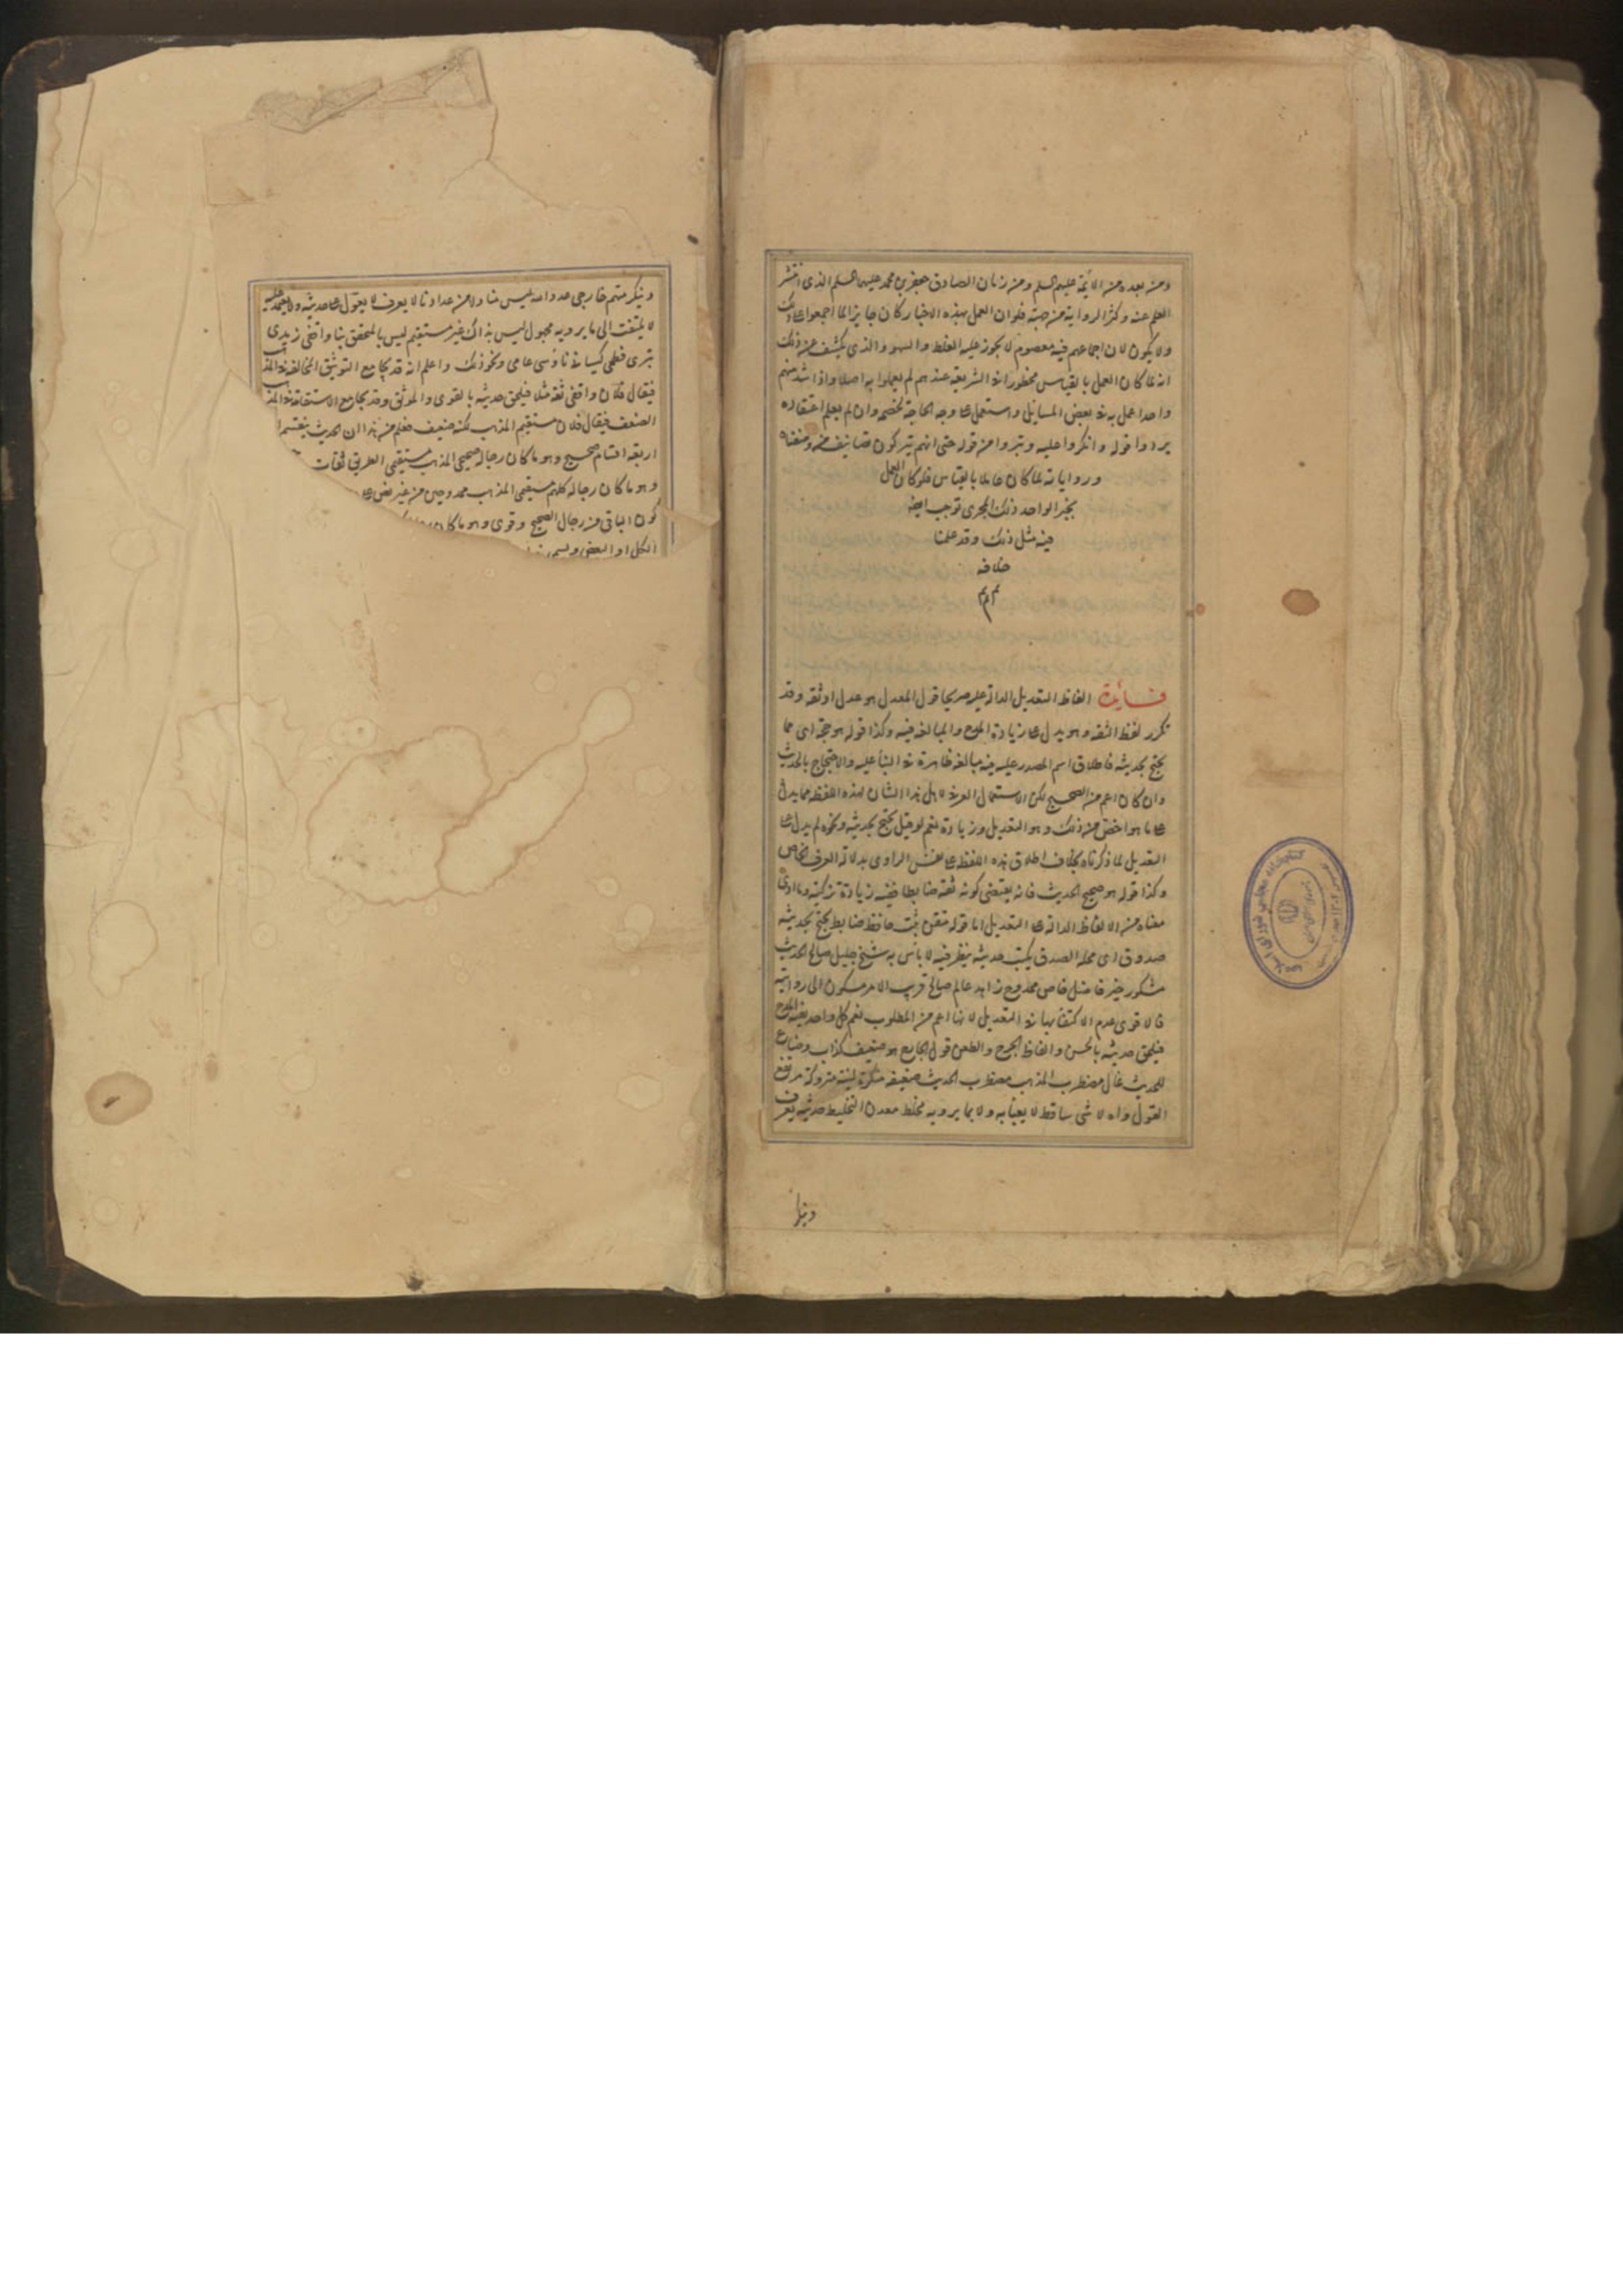 ومن بعده من الائمة عليهم السلم ومن زمان الصادق جعفر بن محمد عليهما السلم الذى انتشر
العلم عنه وكثر الرواية من جهته فلو ان العمل بهذه الاخبار كان جايزا لما اجمعوا على ذلك
ولا يكون لان اجماعهم فيه معصوم لا يجوز عليه الغلط والسهو والذى يكشف عن ذلك
انه لما كان العمل بالقياس محظورا فى الشريعة عندهم لم يعملوا به اصلا واذا شذ منهم
واحدا عمل به فى بعض المسايل واستعمل على وجه المحاجة لخصمه وان لم يعلم اعتقاده
يردوا قوله وانكروا عليه وتبروا من قوله حتى انهم يتركون تصانيف من وصفناه
ورواياته لما كان عاملا بالقياس فلو كان العمل
بخبر الواحد ذلك المجرى لوجب ايضا
فيه مثل ذلك وقد علمنا
خلافه
م م م
فـايدة الفاظ التعديل الدالة عليه صريحا قول المعدل هو عدل او ثقه وقد
تكرر لفظ الثقه وهو يدل على زيادة المدح والمبالغه فيه وكذا قوله هو حجة اى مما
يحتج بحديثه فاطلاق اسم المصدر عليه فيه مبالغه ظاهرة فى الثناء عليه والاحتجاج بالحديث
وان كان اعم من الصحيح لكن الاستعمال العرفى لاهل هذا الشان لهذه اللفظه مما يدل
على ما هو اخص من ذلك وهو التعديل وزيادة نعم لو قيل يحتج بحديثه ونحوه لم يدل على
التعديل لما ذكرناه بخلاف اطلاق هذه اللفظ على نفس الراوى بدلالة العرف الخاص
وكذا قوله هو صحيح الحديث فانه يقتضى كونه ثقه ضابطا ففيه زيادة تزكيته وما ادى
معناه من الالفاظ الدالة على التعديل اما قوله متقن ثبت حافظ ضابط يحتج بحديثه
صدوق اى محله الصدق يكتب حديثه ينظر فيه لا باس به شيخ جليل صالح الحديث
مشكور خير فاضل خاص ممدوح زاهد عالم صالح قريب الامر مسكون الى روايته
فالاقوى عدم الاكتفاء بها فى التعديل لانها اعم من المطلوب نعم كل واحد يفيد المدح
فيلحق حديثه بالحسن والفاظ الجرح والطعن قول الجارح هو ضعيف كذاب وضاع
للحديث غال مضطرب المذهب مضطرب الحديث ضعيفه منكره لينه متروكه مرتفع
القول واه لا شى ساقط لا يعبأ به ولا بما يرويه مخلط معدن التخليط حديثه يعرف
وينكر
وينكر متهم خارجى عدو الله ليس منا ولا من عدادنا لا يعرف لا يعول على حديثه ولا يعتمد عليه
لا يلتفت الى ما يرويه مجهول ليس بذاك غير مستقيم ليس بالمحقق بنا واقفى زيدى
بترى فطحى كيسانى ناؤسى عامى ونحو ذلك واعلم انه قد يجامع التوثيق المخالفة فى المذهب
فيقال فلان واقفى ثقه مثلا فيلحق حديثه بالقوى والموثق وقد يجامع الاستقامة فى المذهب
الضعف فيقال فلان مستقيم المذهب لكنه ضعيف فعلم من هذا ان الحديث ينقسم
اربعه اقسام صحيح وهو ما كان رجاله صحيحى المذهب مستقيمى الطريق ثقات
وهو ما كان رجاله كلهم مستقيمى المذهب ممدوحين من غير نص على
كون الباقى من رجال الصحيح وقوى وهو ما كان
الكل او البعض ويسمى